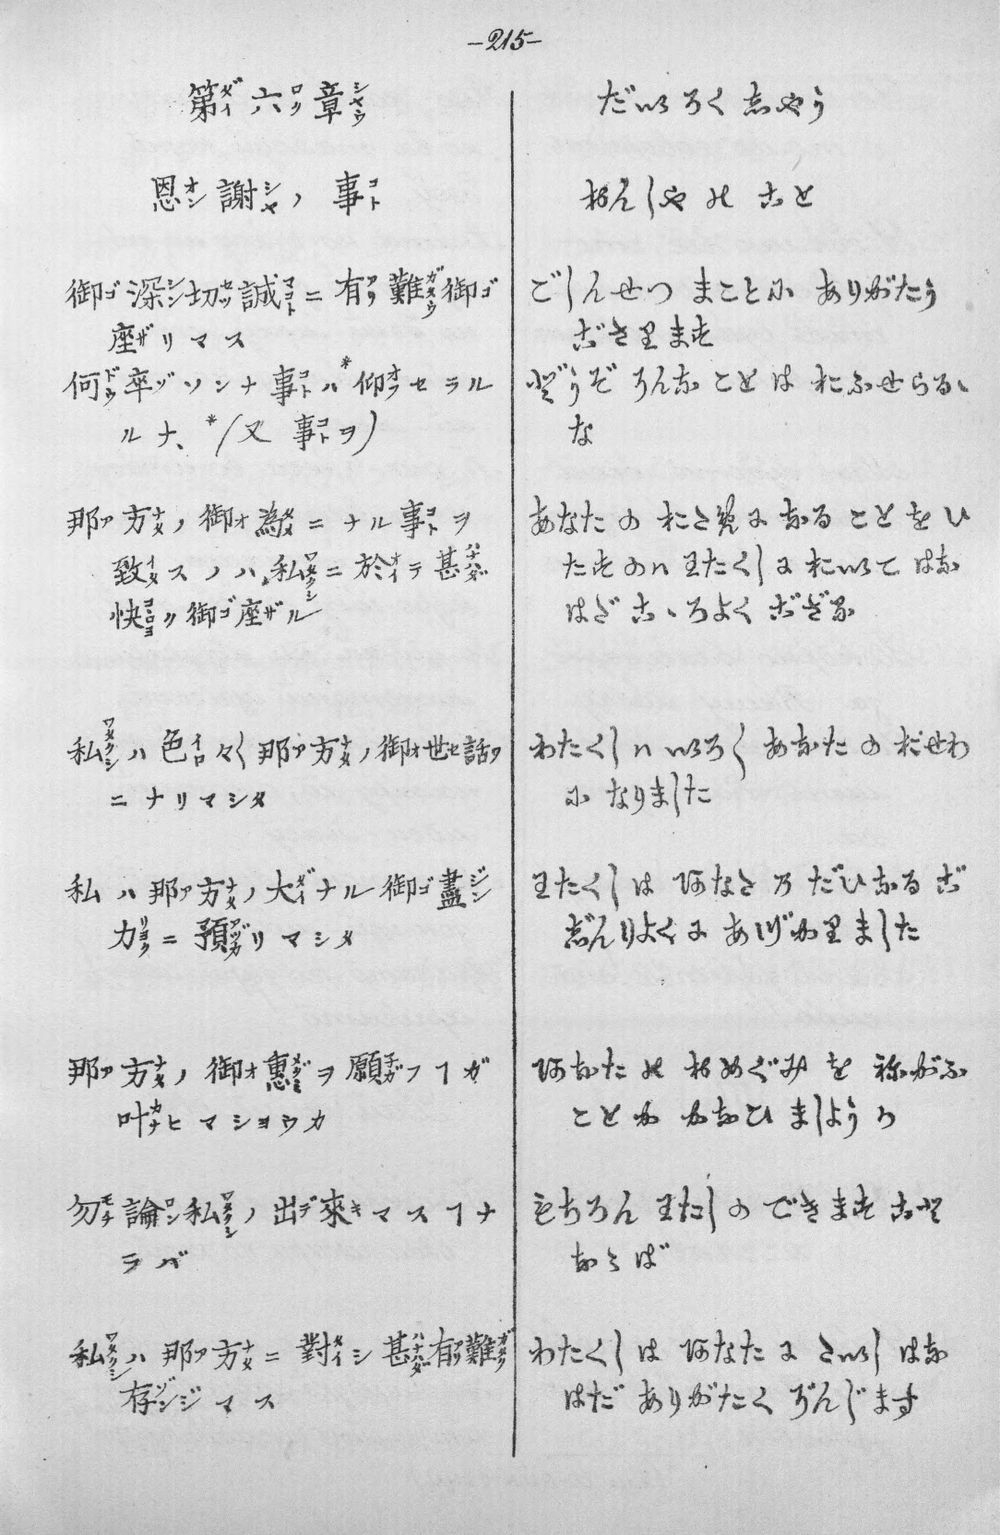 -215-
第六章
恩謝ノ事
御深切誠ニ有難御
座リマス
何卒ソンナ事ハ*仰セラル
ルナ、*(又事ヲ)
那方ノ御為ニナル事ヲ
致スノハ私ニ於テ甚
快ク御座ル
私ハ色々〱那方ノ御世話
ニナリマシタ
私ハ那方ノ大ナル御盡
力ニ預リマシタ
那方ノ御惠ヲ願フヿガ
叶ヒマショウカ
勿論私ノ出來マスヿナ
ラバ
私ハ那方ニ對シ甚有難
存ジマス
だいろく志やう
おんしやのこと
ごしんせつ まことに ありがたう
ございます
どうぞ そんな ことは おふせらるゝ
な
あなたの おために なる ことを い
たすのハ わたくしに おいて はな
はだ こゝろよく ござる
わたくしハ いろ〱 あなたの おせわ
に なりました
わたくしは あなたの だいなる ご
じんりよくに あづかりました
あなたの おめぐみを ねがふ
ことが かなひ ましようか
もちろん わたしの できます こと
ならば
わたくしは あなたに たいし はな
はだ ありがたく ぞんじます